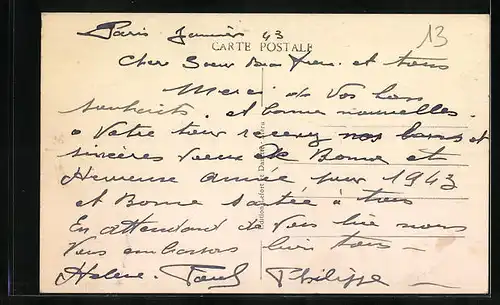 Paris Janvier 43
13
CARTE POSTALE
Cher Soeur Beau frere. et tous
Merci de Vos bons
souhaits. et bonne nouvelles.
a Votre tour recevez nos bons et
sincères Vœux de Bonne et
Heureuse année pour 1943
et Bonne santée à tous
En attendant de Vous lire nous
Vous embrassons bien tous —
Helene. Paul Philippe —
Edition Lefort